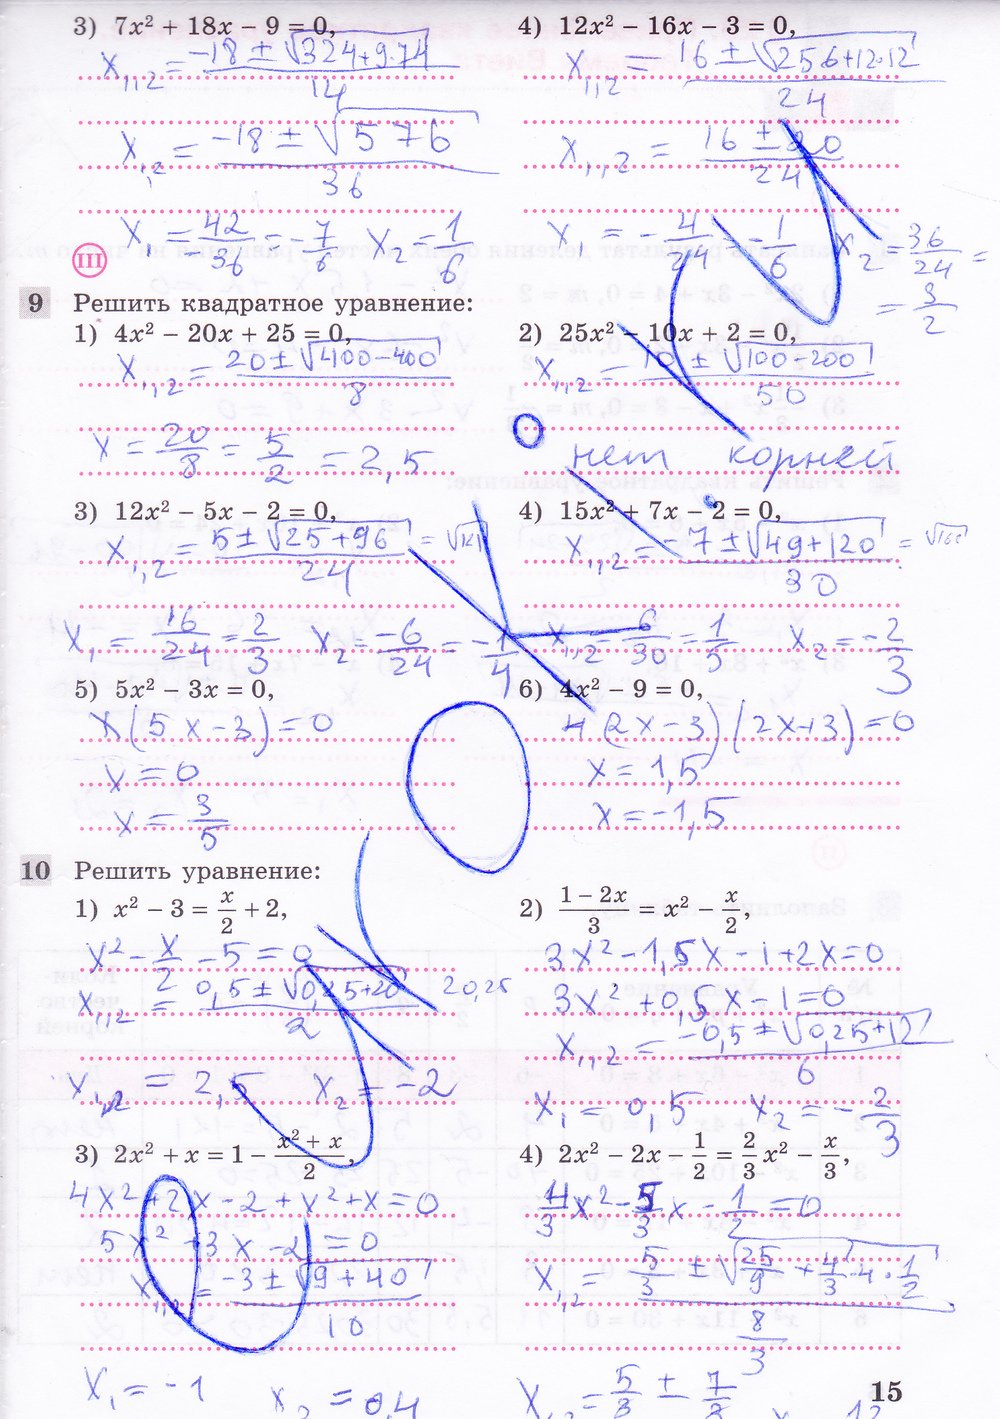 3) 7x² + 18x − 9 = 0,
x₁,₂ = (−18 ± √(324+9·7·4))/14
x₁,₂ = (−18 ± √576)/36
x₁ = −42/36 = −7/6 x₂ = 1/6
4) 12x² − 16x − 3 = 0,
x₁,₂ = (16 ± √(256+12·12))/24
x₁,₂ = (16 ± 20)/24
x₁ = −4/24 = −1/6 x₂ = 36/24 =
= 3/2
III
9 Решить квадратное уравнение:
1) 4x² − 20x + 25 = 0,
x₁,₂ = (20 ± √(400−400))/8
x = 20/8 = 5/2 = 2,5
2) 25x² − 10x + 2 = 0,
x₁,₂ = (10 ± √(100−200))/50
нет корней
3) 12x² − 5x − 2 = 0,
x₁,₂ = (5 ± √(25+96))/24 = √121
x₁ = 16/24 = 2/3 x₂ = −6/24 = −1/4
4) 15x² + 7x − 2 = 0,
x₁,₂ = (−7 ± √(49+120))/30
x₁,₂ = 6/30 = 1/5 x₂ = −2/3
5) 5x² − 3x = 0,
x(5x−3) = 0
x = 0
x = 3/5
6) 4x² − 9 = 0,
4(2x−3)(2x+3) = 0
x = 1,5
x = −1,5
10 Решить уравнение:
1) x² − 3 = x/2 + 2,
x² − x/2 − 5 = 0
x₁,₂ = (0,5 ± √(0,25+20))/2 20,25
x₁,₂ = 2,5 x₂ = −2
2) (1 − 2x)/3 = x² − x/2,
3x² − 1,5x − 1 + 2x = 0
3x² + 0,5x − 1 = 0
x₁,₂ = (−0,5 ± √(0,25+12))/6
x₁ = 0,5 x₂ = −2/3
3) 2x² + x = 1 − (x² + x)/2,
4x² + 2x − 2 + x² + x = 0
5x² + 3x − 2 = 0
x₁,₂ = (−3 ± √(9+40))/10
x₁ = −1 x₂ = 0,4
4) 2x² − 2x − 1/2 = 2/3 x² − x/3,
4/3 x² − 5/3 x − 1/2 = 0
x₁,₂ = (5/3 ± √(25/9 + 4/3·4·1/2))/(8/3)
15